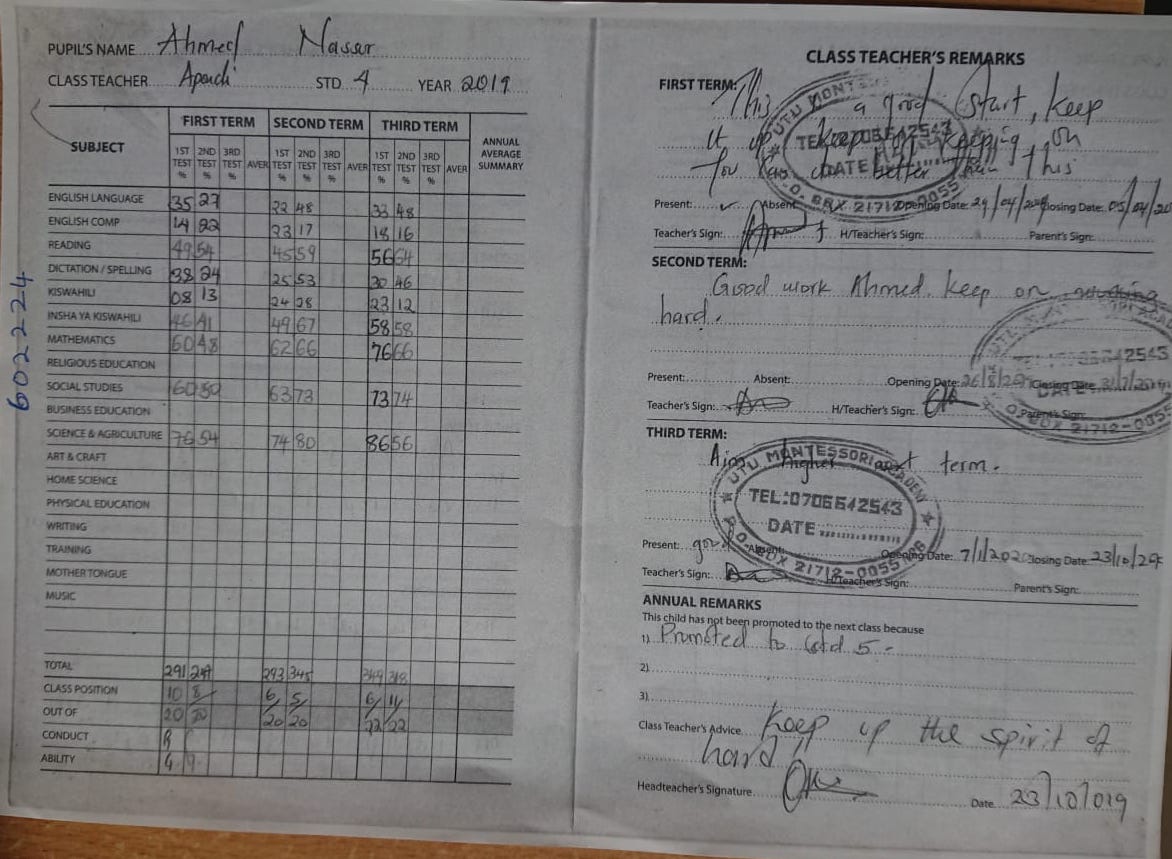 PUPIL'S NAME Ahmed Nasar
CLASS TEACHER Apondi STD 4 YEAR 2019
SUBJECT FIRST TERM SECOND TERM THIRD TERM ANNUAL AVERAGE SUMMARY
1ST TEST % 2ND TEST % 3RD TEST % AVER 1ST TEST % 2ND TEST % 3RD TEST % AVER 1ST TEST % 2ND TEST % 3RD TEST % AVER
ENGLISH LANGUAGE 35 27 22 48 33 48
ENGLISH COMP 14 22 23 17 18 16
READING 49 54 45 59 56 64
DICTATION / SPELLING 38 24 25 53 30 46
KISWAHILI 08 13 24 28 23 12
INSHA YA KISWAHILI 46 41 49 67 58 58
MATHEMATICS 60 48 62 66 76 66
RELIGIOUS EDUCATION
SOCIAL STUDIES 60 50 63 73 73 74
BUSINESS EDUCATION
SCIENCE & AGRICULTURE 76 54 74 80 86 56
ART & CRAFT
HOME SCIENCE
PHYSICAL EDUCATION
WRITING
TRAINING
MOTHER TONGUE
MUSIC
TOTAL 291 293 345 349 318
CLASS POSITION 10 8 6 5 6 11
OUT OF 20 20 20 20 22 22
CONDUCT B
ABILITY
602224
CLASS TEACHER'S REMARKS
FIRST TERM: This a good start, keep
it up keep on keeping on
You can do better than this
UTU MONTESSORI
TEL:0706642543
DATE
P.O. BOX 21712-0055
Present: Absent: Opening Date: 29/04/2019 Closing Date: 05/04/20
Teacher's Sign: H/Teacher's Sign: Parent's Sign:
SECOND TERM:
Good work Ahmed. keep on working
hard.
0706642543
DATE
P.O. BOX 21712-0055
Present: Absent: Opening Date: 26/8/20 Closing Date:
Teacher's Sign: H/Teacher's Sign: Parent's Sign:
THIRD TERM:
Aim Higher next term.
UTU MONTESSORI ACADEMY
TEL:0706642543
DATE
P.O. BOX 21712-0055
Present: good Absent: Opening Date: 7/1/2020 Closing Date: 23/10/
Teacher's Sign: H/Teacher's Sign: Parent's Sign:
ANNUAL REMARKS
This child has not been promoted to the next class because
1) Promoted to std 5.
2)
3)
Class Teacher's Advice Keep up the spirit of
hard
Headteacher's Signature Date 23/10/019